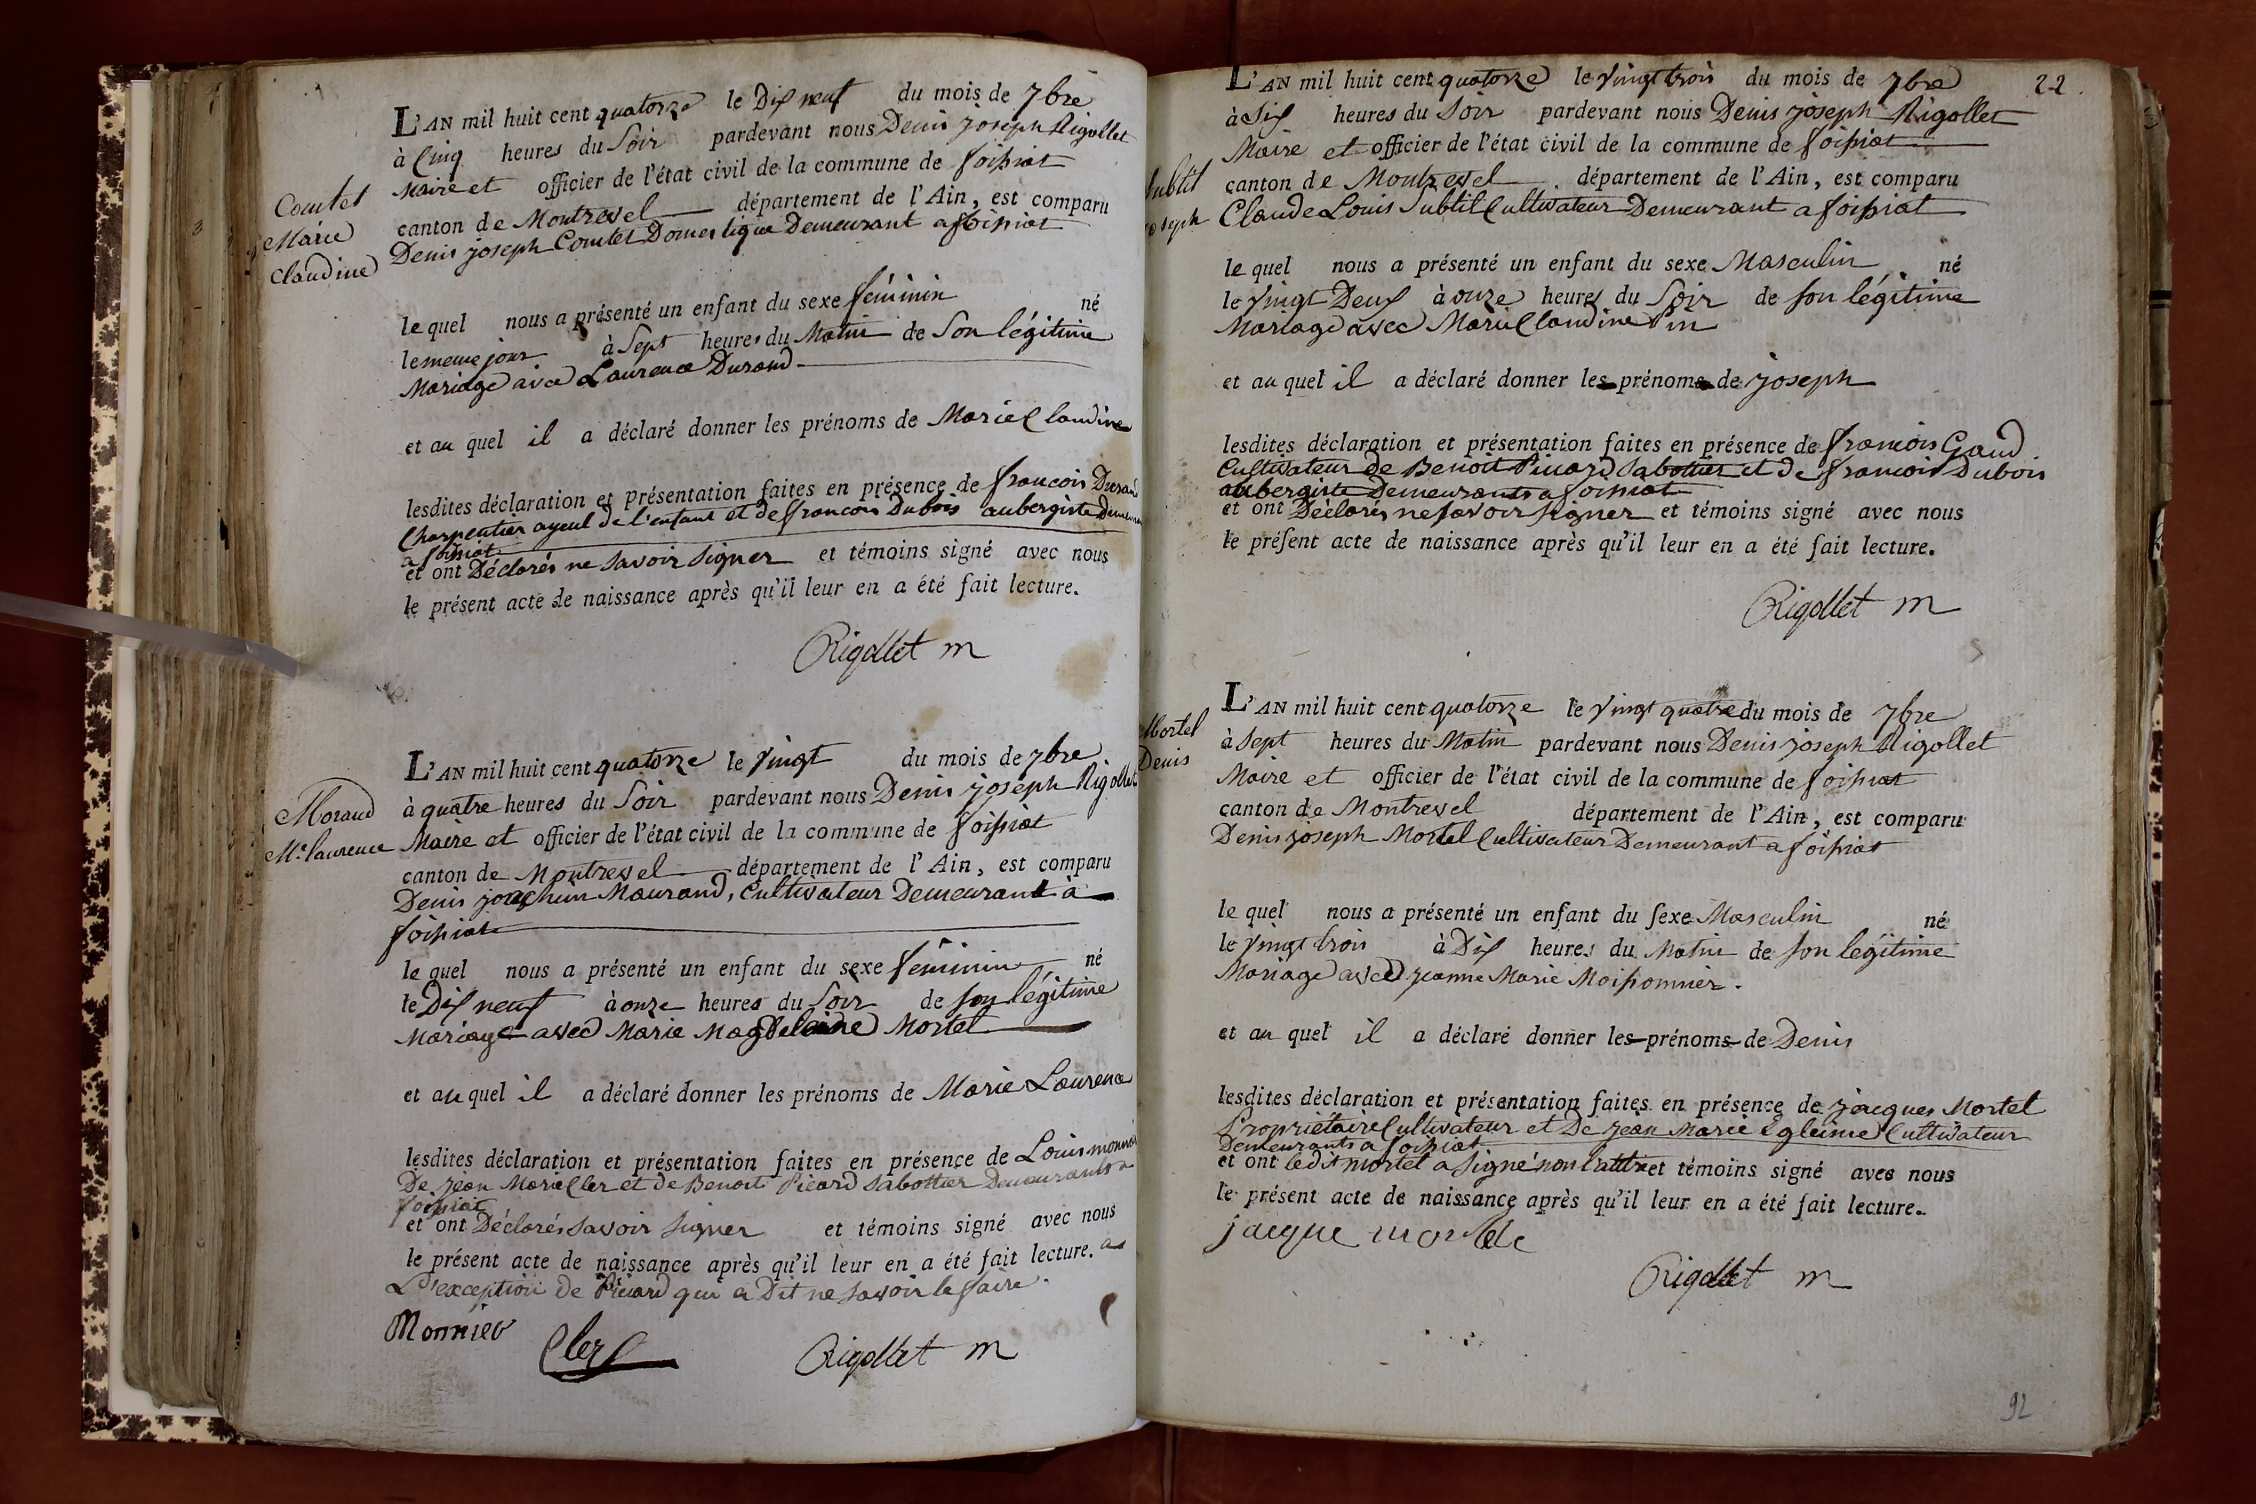 Comtet
Marie
Claudine
L'AN mil huit cent quatorze le Dix neuf du mois de 7bre
à Cinq heures du Soir pardevant nous Denis joseph Rigollet
Maire et officier de l'état civil de la commune de foissiat
canton de Montrevel département de l'Ain, est comparu
Denis joseph Comtet Domestique Demeurant a foissiat
le quel nous a présenté un enfant du sexe féminin né
le meme jour à Sept heures du Matin de Son légitime
Mariage avec Laurence Durand
et au quel il a déclaré donner les prénoms de Marie Claudine
lesdites déclaration et présentation faites en présence de francois Durand
Charpentier ayeul de l'enfant et de francois Dubois aubergiste
a foissiat
et ont Déclarés ne savoir signer et témoins signé avec nous
le présent acte de naissance après qu'il leur en a été fait lecture.
Rigollet m
Morand
Me. laurence
L'AN mil huit cent quatorze le vingt du mois de 7bre
à quatre heures du Soir pardevant nous Denis joseph Rigollet
Maire et officier de l'état civil de la commune de foissiat
canton de Montrevel département de l'Ain, est comparu
Denis joachim Maurand, Cultivateur Demeurant à
foissiat
le quel nous a présenté un enfant du sexe féminin né
le Dix neuf à onze heures du Soir de son légitime
Mariage avec Marie Magdelaine Mortel
et au quel il a déclaré donner les prénoms de Marie Laurence
lesdites déclaration et présentation faites en présence de Louis monnier
De jean Marie Cler et de Benoit Picard Sabottier Demeurants a
foissiat
et ont Déclarés savoir signer et témoins signé avec nous
le présent acte de naissance après qu'il leur en a été fait lecture. a
L'exception de Picard qui a Dit ne savoir le faire.
Monnier
Cler
Rigollet m
22
Subtil
joseph
L'AN mil huit cent quatorze le vingt trois du mois de 7bre
à Six heures du Soir pardevant nous Denis joseph Rigollet
Maire et officier de l'état civil de la commune de foissiat
canton de Montrevel département de l'Ain, est comparu
Claude Louis Subtil Cultivateur Demeurant a foissiat
le quel nous a présenté un enfant du sexe Masculin né
le vingt Deux à onze heures du Soir de son légitime
Mariage avec Marie Claudine Pin
et au quel il a déclaré donner les prénoms de joseph
lesdites déclaration et présentation faites en présence de francois Gaud
Cultivateur de Benoit Picard Sabottier et de francois Dubois
aubergiste Demeurants a foissiat
et ont Déclarés ne savoir signer et témoins signé avec nous
le présent acte de naissance après qu'il leur en a été fait lecture.
Rigollet m
Mortel
Denis
L'AN mil huit cent quatorze le vingt quatre du mois de 7bre
à Sept heures du Matin pardevant nous Denis joseph Rigollet
Maire et officier de l'état civil de la commune de foissiat
canton de Montrevel département de l'Ain, est comparu
Denis joseph Mortel Cultivateur Demeurant a foissiat
le quel nous a présenté un enfant du sexe Masculin né
le vingt trois à Dix heures du Matin de son légitime
Mariage avec jeanne Marie Moissonnier.
et au quel il a déclaré donner les prénoms de Denis
lesdites déclaration et présentation faites en présence de jacques Mortel
Propriétaire Cultivateur et De jean Marie Egleime Cultivateur
Demeurants a foissiat
et ont ledit mortel a signé non l'autre et témoins signé avec nous
le présent acte de naissance après qu'il leur en a été fait lecture.
jacque mortele
Rigollet m
92